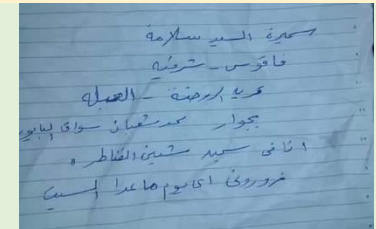 سميرة السيد سلامة
فاقوس - شرقيه
عزبه الروضة - الهجله
بجوار محمد شعبان سواق البابور
انا فى سجن شبين القناطر
زورونى اى يوم ماعدا السبت